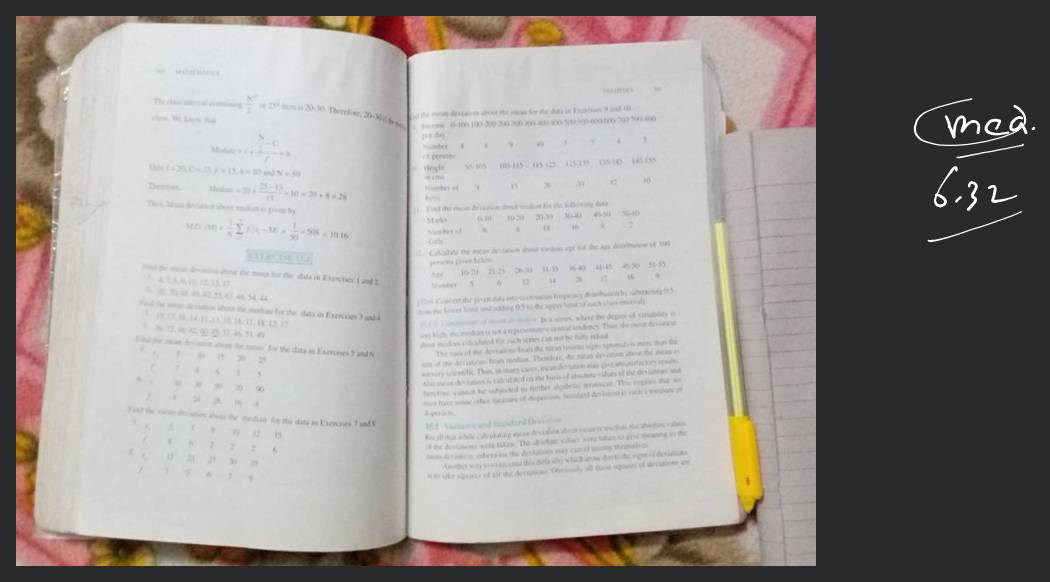 MATHEMATICS
The class interval containing N/2 th or 25th item is 20-30. Therefore, 20-30 is the
class. We know that
Median = l + (N/2 − C)/f × h
Here l = 20, C = 13, f = 15, h = 10 and N = 50
Therefore, Median = 20 + (25 − 13)/15 × 10 = 20 + 8 = 28
Thus, Mean deviation about median is given by
EXERCISE
Find the mean deviation about the mean for the data in Exercises 1 and 2.
4, 7, 8, 9, 10, 12, 13, 17
Find the mean deviation about the median for the data in Exercises 3 and 4.
Find the mean deviation about the mean for the data in Exercises 5 and 6.
5 10 15 20 25
7 4 6 3 5
10 30 50 70 90
4 24 28 16 8
Find the mean deviation about the median for the data in Exercises 7 and 8.
5 7 9 10 12 15
8 6 2 2 2 6
15 21 27 30 35
3 5 6 7 8
STATISTICS
Find the mean deviation about the mean for the data in Exercises 9 and 10.
per day
Number 4 8 9 10 7 5 4 3
of persons
Height 95-105 105-115 115-125 125-135 135-145 145-155
in cms
Number of 9 13 26 30 12 10
boys
Find the mean deviation about median for the following data :
Marks 0-10 10-20 20-30 30-40 40-50 50-60
Number of 6 8 14 16 4 2
Girls
Calculate the mean deviation about median age for the age distribution of 100
persons given below:
Age 16-20 21-25 26-30 31-35 36-40 41-45 46-50 51-55
Number 5 6 12 14 26 12 16 9
[Hint Convert the given data into continuous frequency distribution by subtracting 0.5
from the lower limit and adding 0.5 to the upper limit of each class interval]
Limitations of mean deviation In a series, where the degree of variability is
very high, the median is not a representative central tendency. Thus, the mean deviation
about median calculated for such series can not be fully relied.
The sum of the deviations from the mean (minus signs ignored) is more than the
sum of the deviations from median. Therefore, the mean deviation about the mean is
not very scientific. Thus, in many cases, mean deviation may give unsatisfactory results.
Also mean deviation is calculated on the basis of absolute values of the deviations and
therefore, cannot be subjected to further algebraic treatment. This implies that we
must have some other measure of dispersion. Standard deviation is such a measure of
dispersion.
Variance and Standard Deviation
Recall that while calculating mean deviation about mean or median, the absolute values
of the deviations were taken. The absolute values were taken to give meaning to the
mean deviation, otherwise the deviations may cancel among themselves.
Another way to overcome this difficulty which arose due to the signs of deviations,
is to take squares of all the deviations. Obviously all these squares of deviations are
6.32